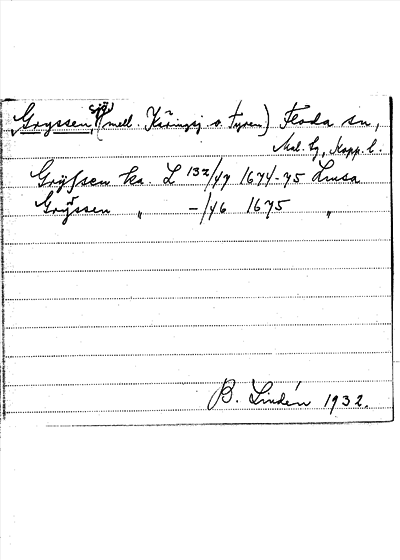 Gryssen, sjö (mell. Käringsj. o. Tyren) Floda sn,
Nal. tg, Kopp. l.
Gryssen ka. L 132/47 1674-75 Lmsa
Gryssen " -/46 1675 "
B. Lindén 1932.